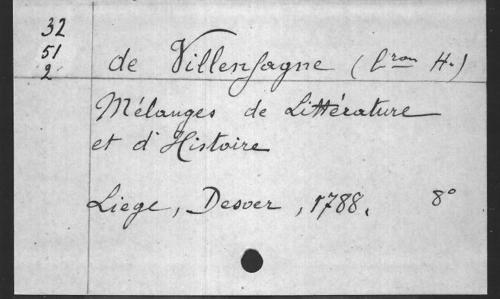 32
51
2
de Villenfagne (bron H.)
Mélanges de Littérature
et d'Histoire
Liege, Desoer, 1788. 8°